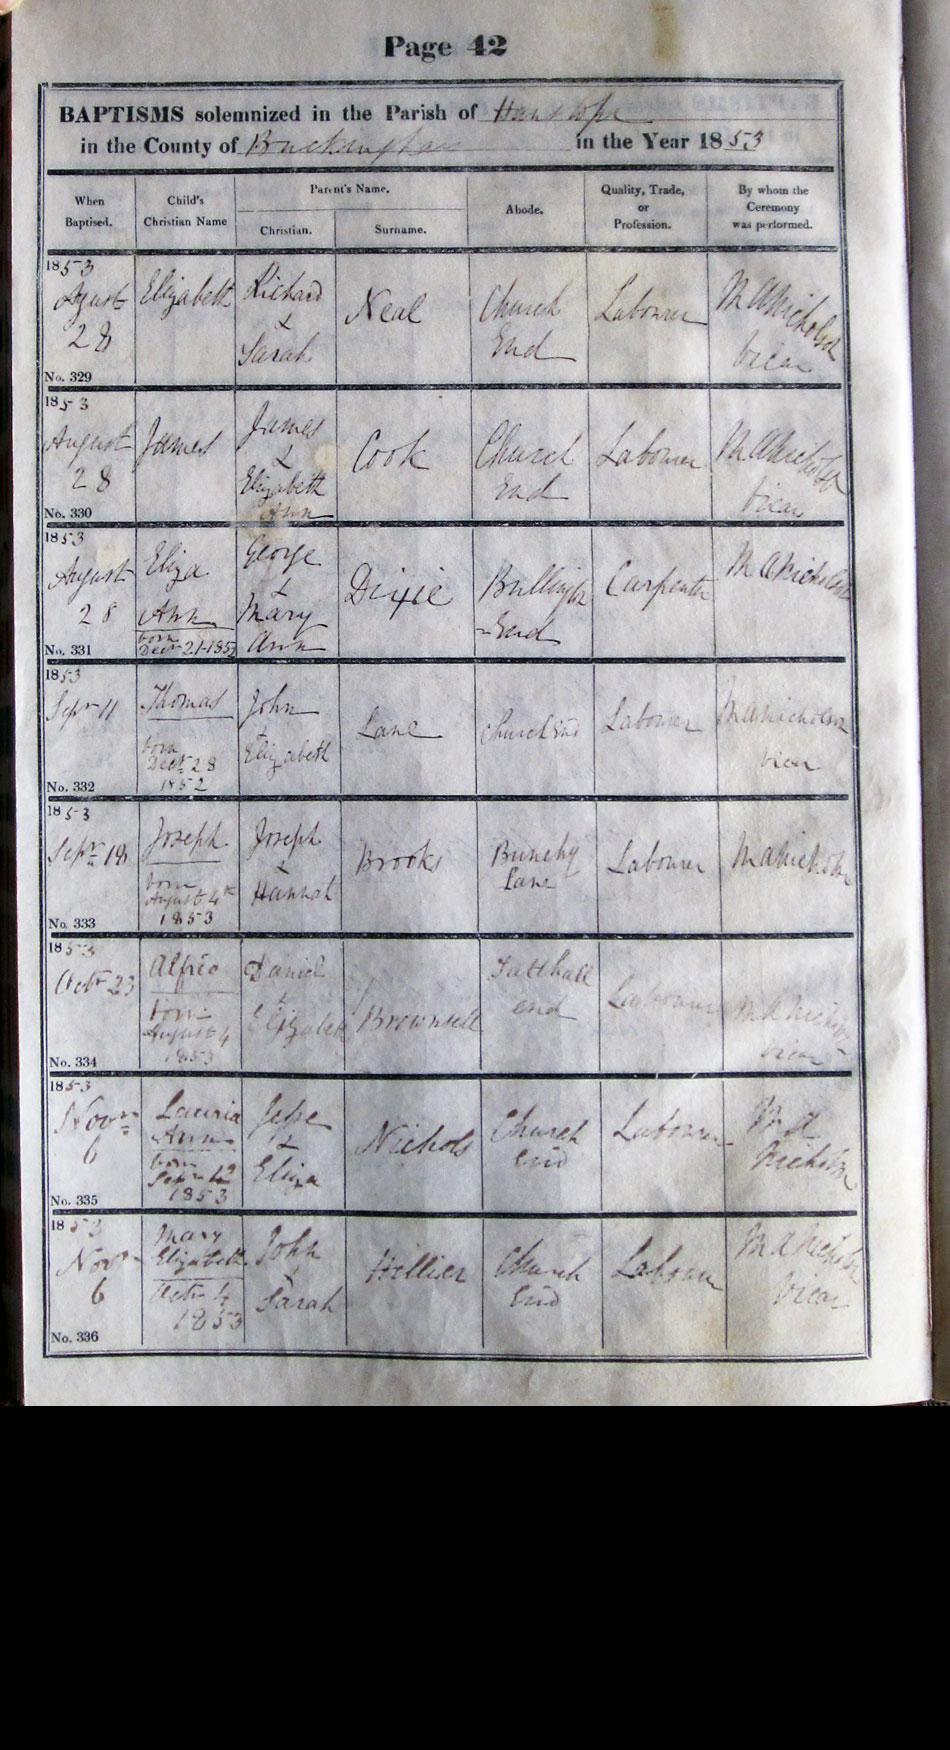 Page 42
BAPTISMS solemnized in the Parish of Hanslope
in the County of Buckingham in the Year 1853
When Baptised.
Child's Christian Name
Parent's Name.
Christian.
Surname.
Abode.
Quality, Trade, or Profession.
By whom the Ceremony was performed.
1853
August
28
No. 329
Elizabeth
Richard
&
Sarah
Neal
Church
End
Labourer
M A Nicholson
Vicar
1853
August
28
No. 330
James
James
&
Elizabeth
Ann
Cook
Church
End
Labourer
M A Nicholson
Vicar
1853
August
28
No. 331
Eliza
Ann
born
Decr 21-1852
George
&
Mary
Ann
Dixie
Bullington
=End
Carpenter
M A Nicholson
1853
Sepr 11
No. 332
Thomas
born
Decr 28
1852
John
Elizabeth
Lane
Church End
Labourer
M A Nicholson
Vicar
1853
Sepr 18
No. 333
Joseph
born
August 4th
1853
Joseph
&
Hannah
Brooks
Lane
Labourer
M A Nicholson
1853
Octr 23
No. 334
Alfred
born
August 4
1853
Daniel
&
Elizabeth
Brownsell
Tatthall
end
Labourer
M A Nicholson
Vicar
1853
Novr
6
No. 335
Ann
born
Sepr
1853
Jesse
&
Eliza
Nichols
Church
end
Labourer
M A
Nicholson
1853
Novr
6
No. 336
Mary
Elizabeth
Octr 4
1853
John
&
Sarah
Hillier
Church
End
Labourer
M A Nicholson
Vicar